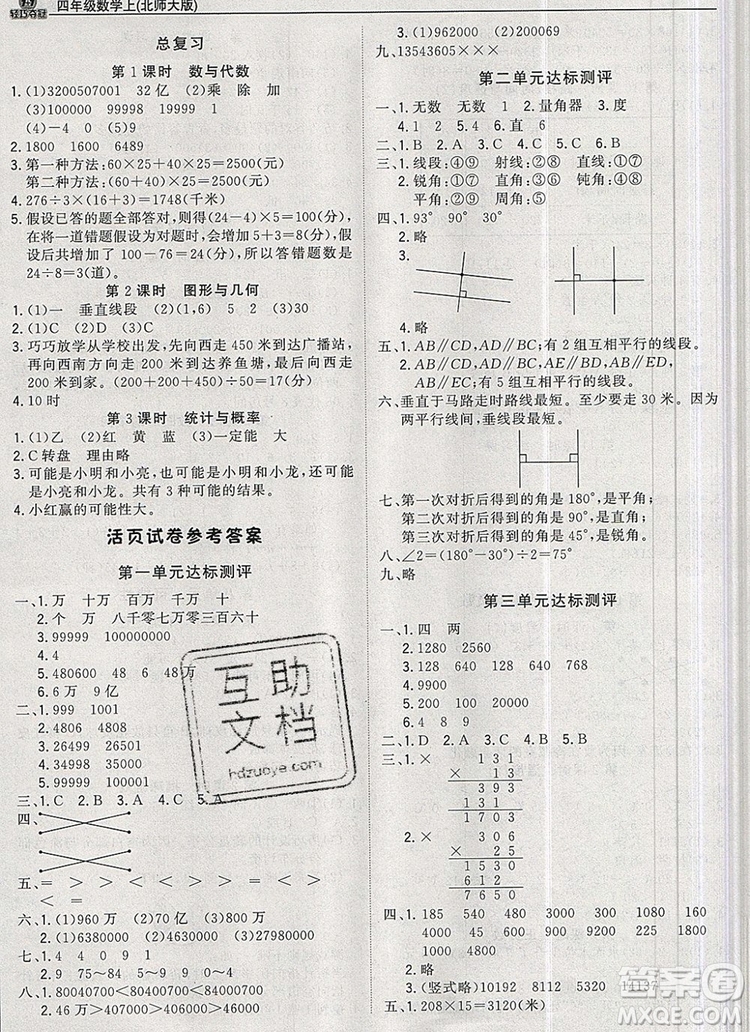 轻巧夺冠 四年级数学上(北师大版)
总复习
第1课时 数与代数
1. (1)3200507001 32亿 (2)乘 除 加
(3)100000 89999 19999 10000
(4)-4 0 (5)9
2. 1800 1600 6489
3. 第一种方法:60×25+40×25=2500(元)
第二种方法:(60+40)×25=2500(元)
4. 276÷3×(16+3)=1748(千米)
5. 假设已答的题全部答对,则得(24-4)×5=100(分),
在将一道错题假设为对题时,多得了3+5=8(分),
现在多得了100-76=24(分),所以答错题数是
24÷8=3(道)。
第2课时 图形与几何
1. (1)一 垂直线段 (2)(1,6) 5 2 (3)30
2. (1)C (2)C
3. 巧巧放学从学校出发,先向西走450米到达广播站,
再向西南方向走200米到达养鱼塘,最后向西走
200米到家。(450+200+200)÷50=17(分)
4. 10时
第3课时 统计与概率
1. (1)乙 (2)红 黄 蓝 (3)一定能 大
2. C转盘 理由略
3. 可能是小明和小亮,也可能是小明和小龙,还可能是
小亮和小龙。共有3种可能的结果。
4. 小红赢的可能性大。
活页试卷参考答案
第一单元达标测评
一、1. 万 十万 百万 千万 十亿
2. 个 万 八千零七万零三百六十
3. 99999 100000000
4. 4
5. 480600 48 6 48万
6. 万 9亿
二、1. 999 1001
2. 4806 4808
3. 26499 26501
4. 30001
5. 99999
三、1. C 2. B 3. A 4. C 5. A
四、
五、= > < > > > <
< =
六、1. (1)960万 (2)70亿 (3)9亿
2. (1)6380000 (2)13000000
七、1. 9 75~84 5~9 0~4 5~9
八、1. 80040700<80400700<84000700
2. 46万>407000>46000
3. (1)962000 (2)200069
九、13543605×××
第二单元达标测评
一、1. 无数 无数 1 2. 量角器 3. 度
4. 1 2 5. 4 6. 直 6
二、1. B 2. A 3. C 4. B
三、1. 线段:④⑨ 射线:②⑧ 直线:①⑦
2. 锐角:④⑨ 直角:③⑥ 钝角:①⑦
平角:② 周角:⑤
四、1. 93° 90° 30°
2. 略
3.
4. 略
五、1. AB∥CD,AD∥BC;有2组互相平行的线段。
2. AB∥CD,AD∥BC,AE∥FD,AF∥ED;
有4组互相平行的线段。
六、垂直于马路走时路线最短。至少走30米。因为
两平行线间,垂线段最短。
七、第一次对折后得到的角是180°,是平角;
第二次对折后得到的角是90°,是直角;
第三次对折后得到的角是45°,是锐角。
八、∠2=(180°-90°)÷2=45°
九、略
第三单元达标测评
一、1. 四 两
2. 1280 2560
3. 320 128 112 640 768
4. 9900
5. 200
6. 4 8 9
二、1. D 2. A 3. C 4. D 5. B
三、1. × 131
× 131
131
393
131
17161
2. × 306
× 25
1530
612
7650
四、1. 185 540 480 3000 160
4000 45 6000 600 9000
2. 略
3. (竖式略)10192 8112 5320 14137
五、1. 208×15=3120(米)
互助
文档
hdzuoye.com
答案圈
MXQE.COM